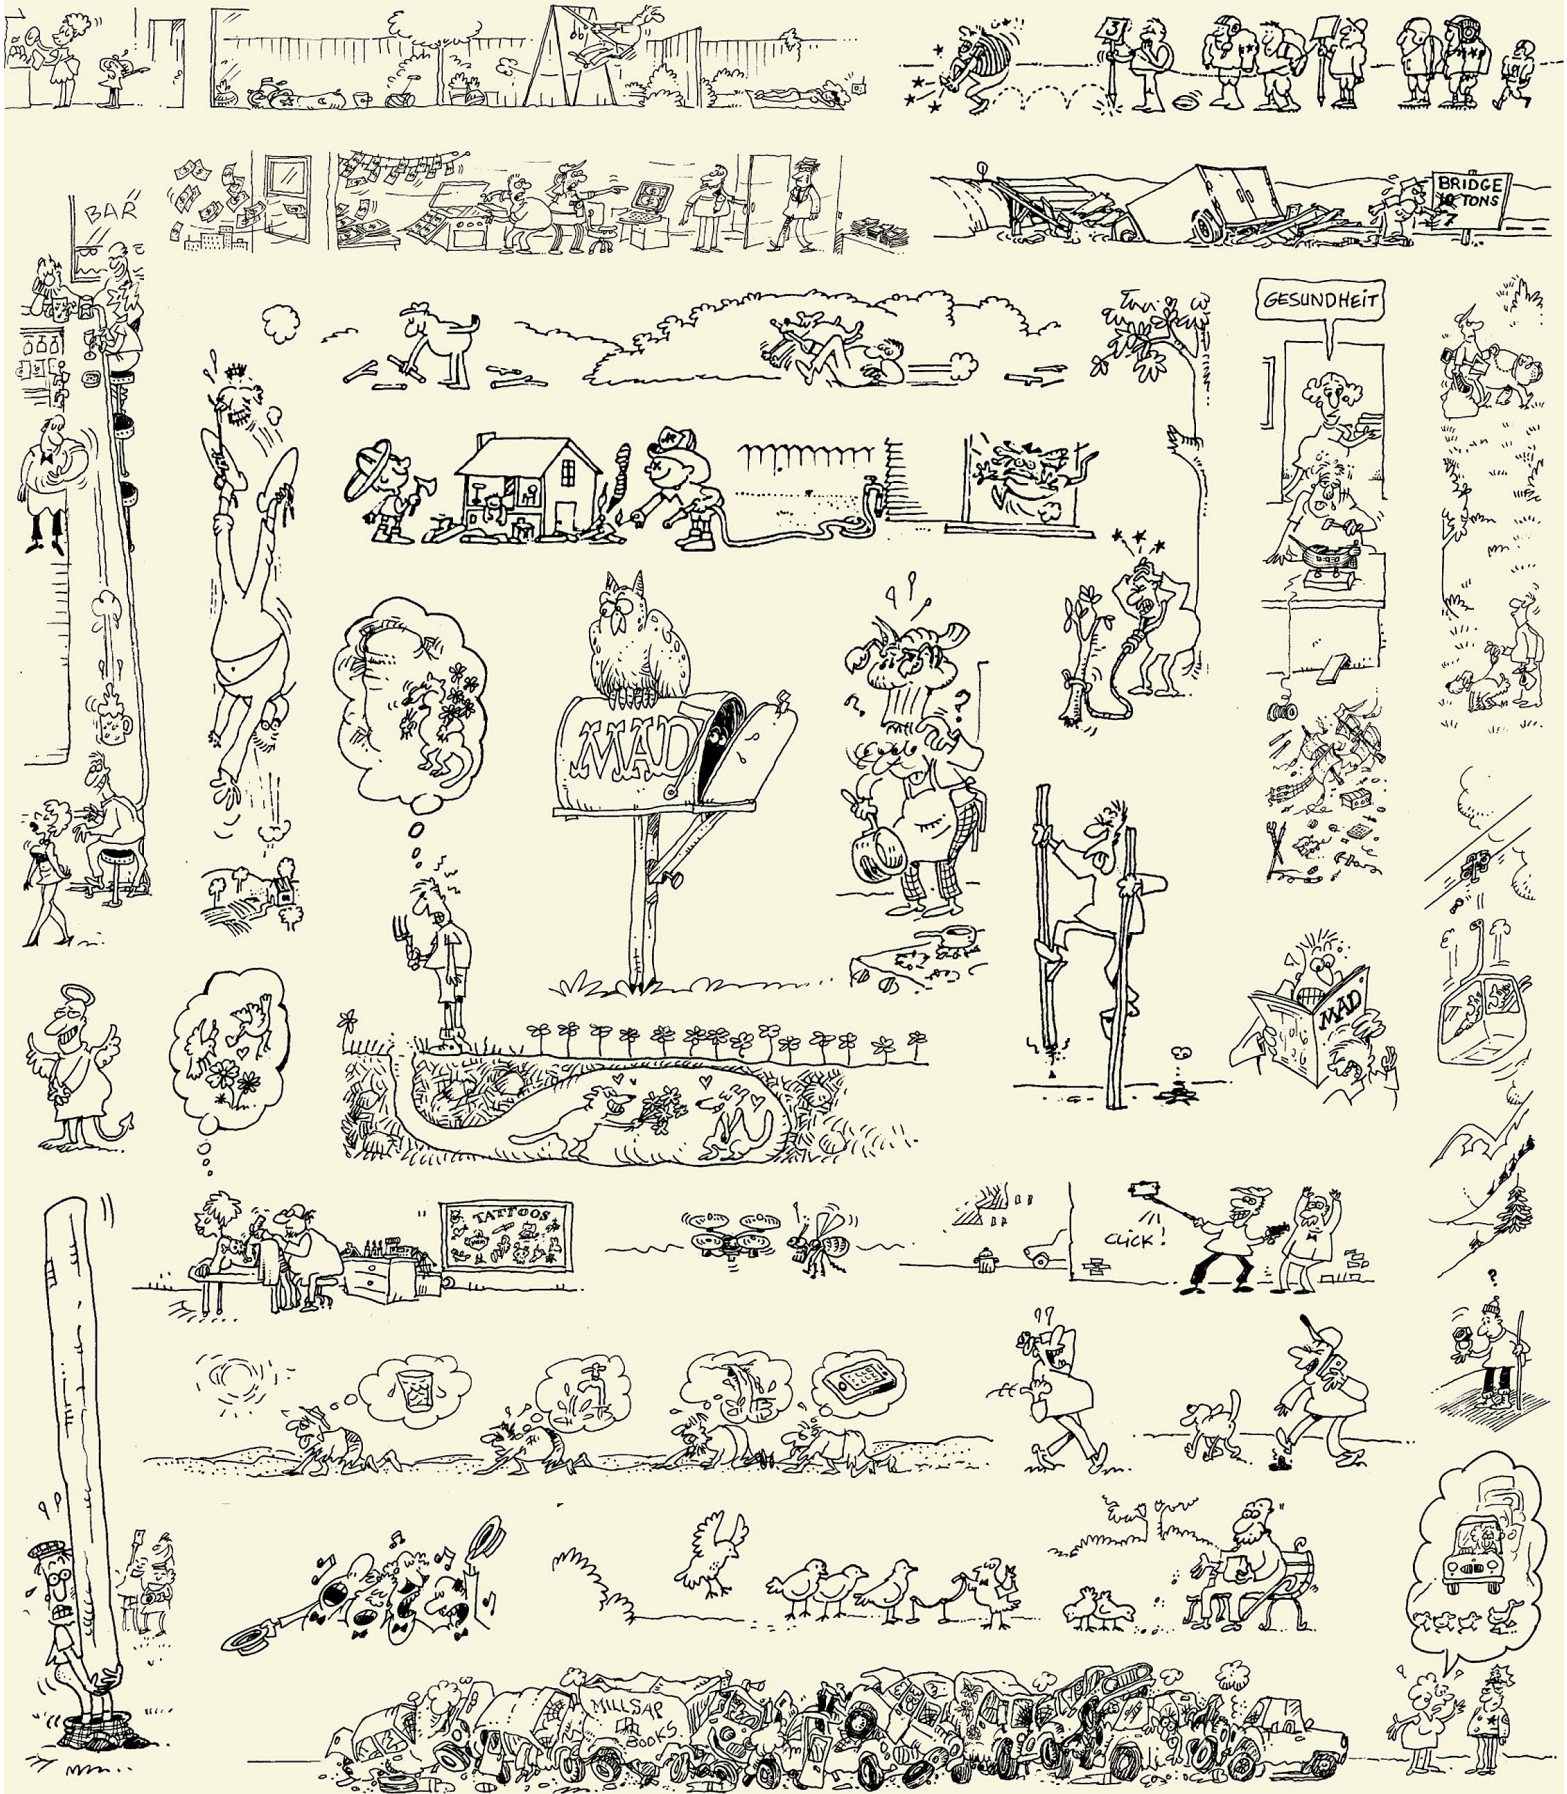 3
BAR
BRIDGE
TONS
GESUNDHEIT
?
?
MAD
MAD
TATTOOS
CLICK!
?
??
MILLSAP
BOOKS